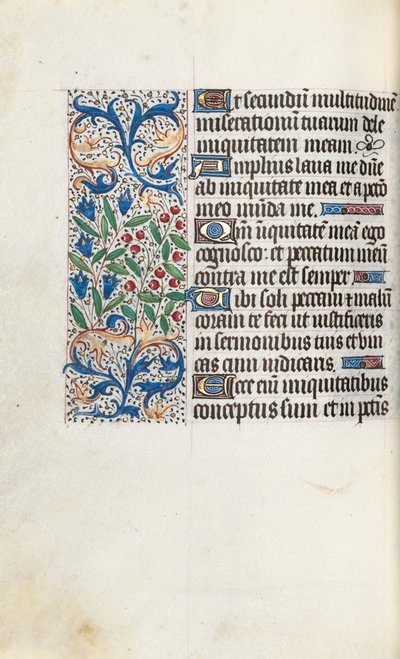 Et secundū multitudinē
miserationū tuarum dele
iniquitatem meam
Amplius laua me dūe
ab iniquitate mea et a pctō
meo munda me
Qm̄ iniquitatē meā ego
cognosco: et peccatum meū
contra me est semper
Tibi soli peccaui ⁊ malū
coram te feci ut iustificeris
in sermonibus tuis et vin
cas cum iudicaris.
Ecce eni̅ iniquitatibus
conceptus sum et in pctīs